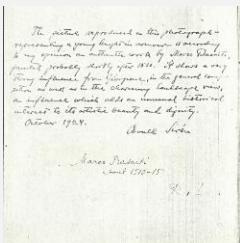 The picture reproduced in this photograph –
representing a young knight in armour is according
to my opinion an authentic work by Marco Basaiti,
painted probably shortly after 1510. It shows a very
strong influence from Giorgione, in the general composi
tion as well as in the charming landscape view,
an influence which adds an unusual historical
interest to its artistic beauty and dignity.
October 1924.
Osvald Sirén
Marco Basaiti
1510–15